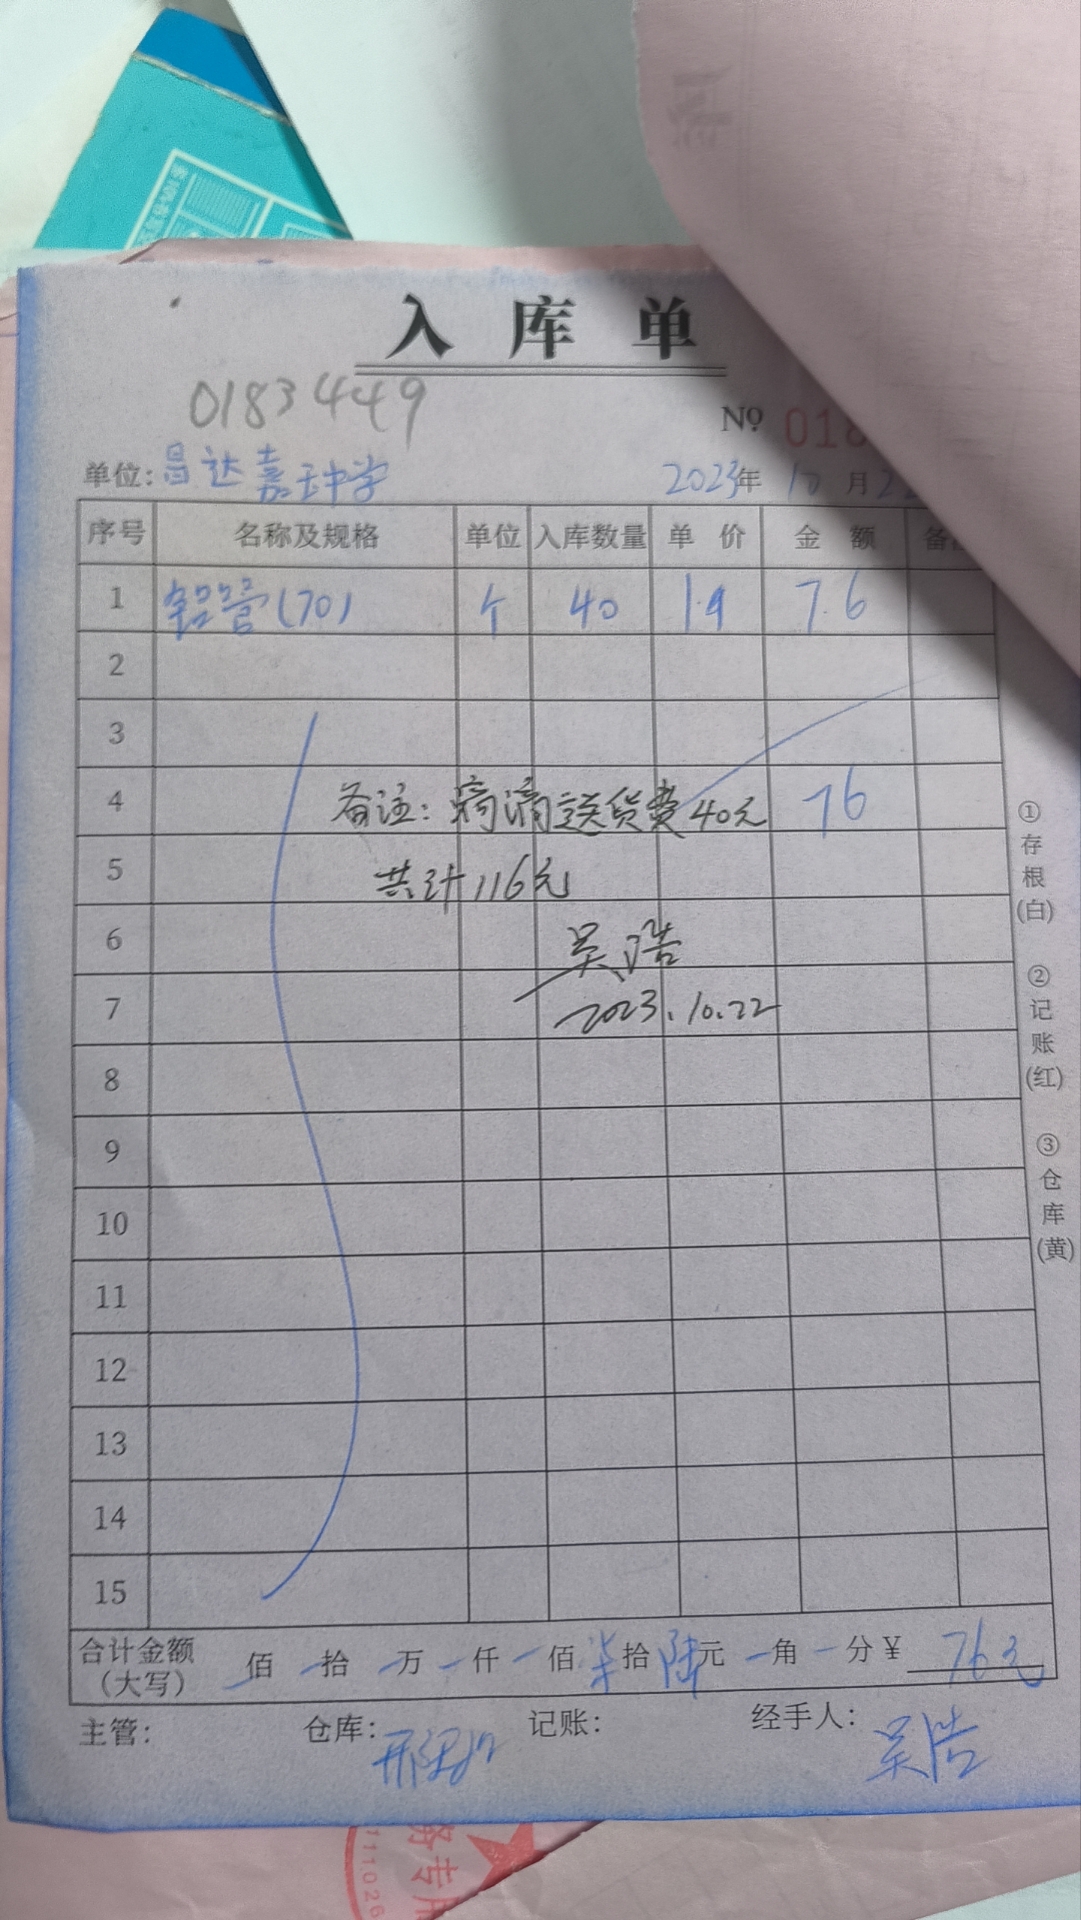 入库单
0183449
№ 018
单位：昌达嘉玉中学 2023年10月2
序号 名称及规格 单位 入库数量 单价 金额 备
1 铝管(70) 个 40 1.9 7.6
2
3
4 备注：滴滴送货费40元 76
5 共计116元
6 吴浩
7 2023.10.22
8
9
10
11
12
13
14
15
合计金额（大写） 佰 拾 万 仟 佰 柒拾 陆元 角 分 ¥ 76元
主管： 仓库： 记账： 经手人：吴浩
①存根(白) ②记账(红) ③仓库(黄)
务专用